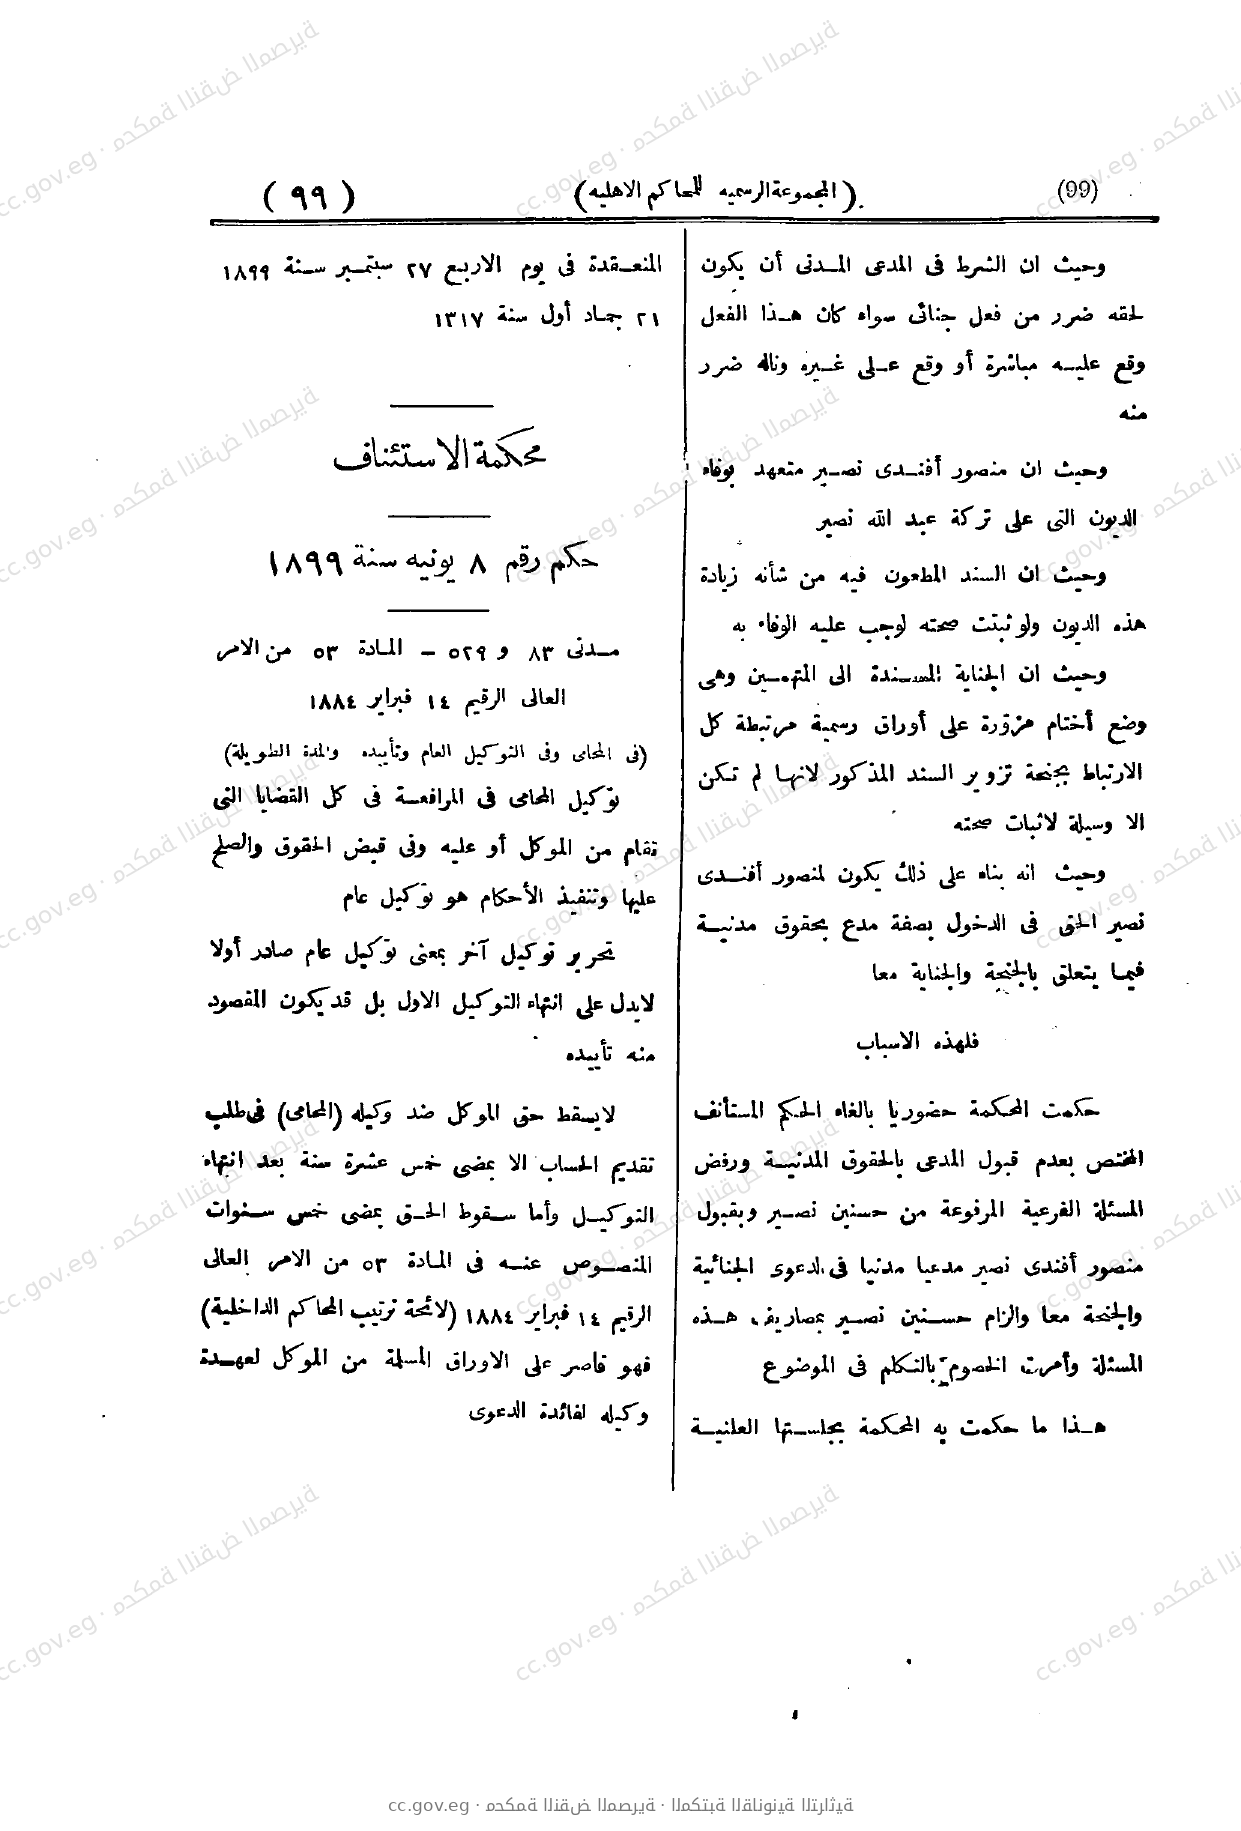 (99)
(المجموعة الرسميه للمحاكم الاهليه)
( ٩٩ )
وحيث ان الشرط فى المدعى المـدنى أن يكون
لحقه ضرر من فعل جنائى سواء كان هـذا الفعل
وقع عليـه مباشرة أو وقع عـلى غـيره وناله ضرر
منه
وحيث ان منصور أفنـدى نصـير متعهد بوفاء
الديون التى على تركة عبد الله نصير
وحيث ان السند المطعون فيه من شأنه زيادة
هذه الديون ولو ثبتت صحته لوجب عليه الوفاء به
وحيث ان الجناية المسـندة الى المتهمـين وهى
وضع أختام مزوّرة على أوراق رسمية مرتبطة كل
الارتباط بجنحة تزوير السند المذكور لانهـا لم تـكن
الا وسيلة لاثبات صحته
وحيث انه بناء على ذلك يكون لمنصور أفنـدى
نصير الحق فى الدخول بصفة مدع بحقوق مدنيـة
فيمـا يتعلق بالجنحة والجناية معا
فلهذه الاسباب
حكمت المحكمة حضوريا بالغاء الحكم المستأنف
المختص بعدم قبول المدعى بالحقوق المدنيـة ورفض
المسئلة الفرعية المرفوعة من حسنين نصـير وبقبول
منصور أفندى نصير مدعيا مدنيا فى الدعوى الجنائية
والجنحة معا والزام حسـنين نصـير بمصاريف هـذه
المسئلة وأمرت الخصوم بالتكلم فى الموضوع
هـذا ما حكمت به المحكمة بجلسـتها العلنيـة
المنعـقدة فى يوم الاربـع ٢٧ سبتمـبر سـنة ١٨٩٩
٢١ جماد أول سنة ١٣١٧
محكمة الاستئناف
حكم رقم ٨ يونيه سنة ١٨٩٩
مـدنى ٨٣ و ٥٢٩ – المـادة ٥٣ من الامر
العالى الرقيم ١٤ فبراير ١٨٨٤
(فى المحامى وفى التوكيل العام وتأييده والمدة الطويلة)
توكيل المحامى فى المرافعـة فى كل القضايا التى
تقام من الموكل أو عليه وفى قبض الحقوق والصلح
عليها وتنفيذ الأحكام هو توكيل عام
تحرير توكيل آخر بمعنى توكيل عام صادر أولا
لايدل على انتهاء التوكيل الاول بل قد يكون المقصود
منه تأييده
لايسقط حق الموكل ضد وكيله (المحامى) فى طلب
تقديم الحساب الا بمضى خمس عشرة سنة بعد انتهاء
التوكيـل وأما سـقوط الحـق بمضى خمس سـنوات
المنصـوص عنـه فى المـادة ٥٣ من الامر العالى
الرقيم ١٤ فبراير ١٨٨٤ (لائحة ترتيب المحاكم الداخلية)
فهو قاصر على الاوراق المسلمة من الموكل لعهـدة
وكيله لفائدة الدعوى
cc.gov.eg · محكمة النقض المصرية · المكتبة القانونية التراثية